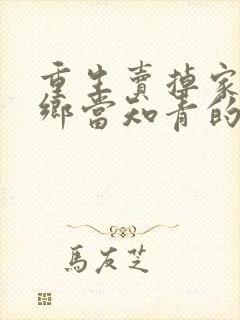 重生賣掉家
鄉當知青的
馬友芝